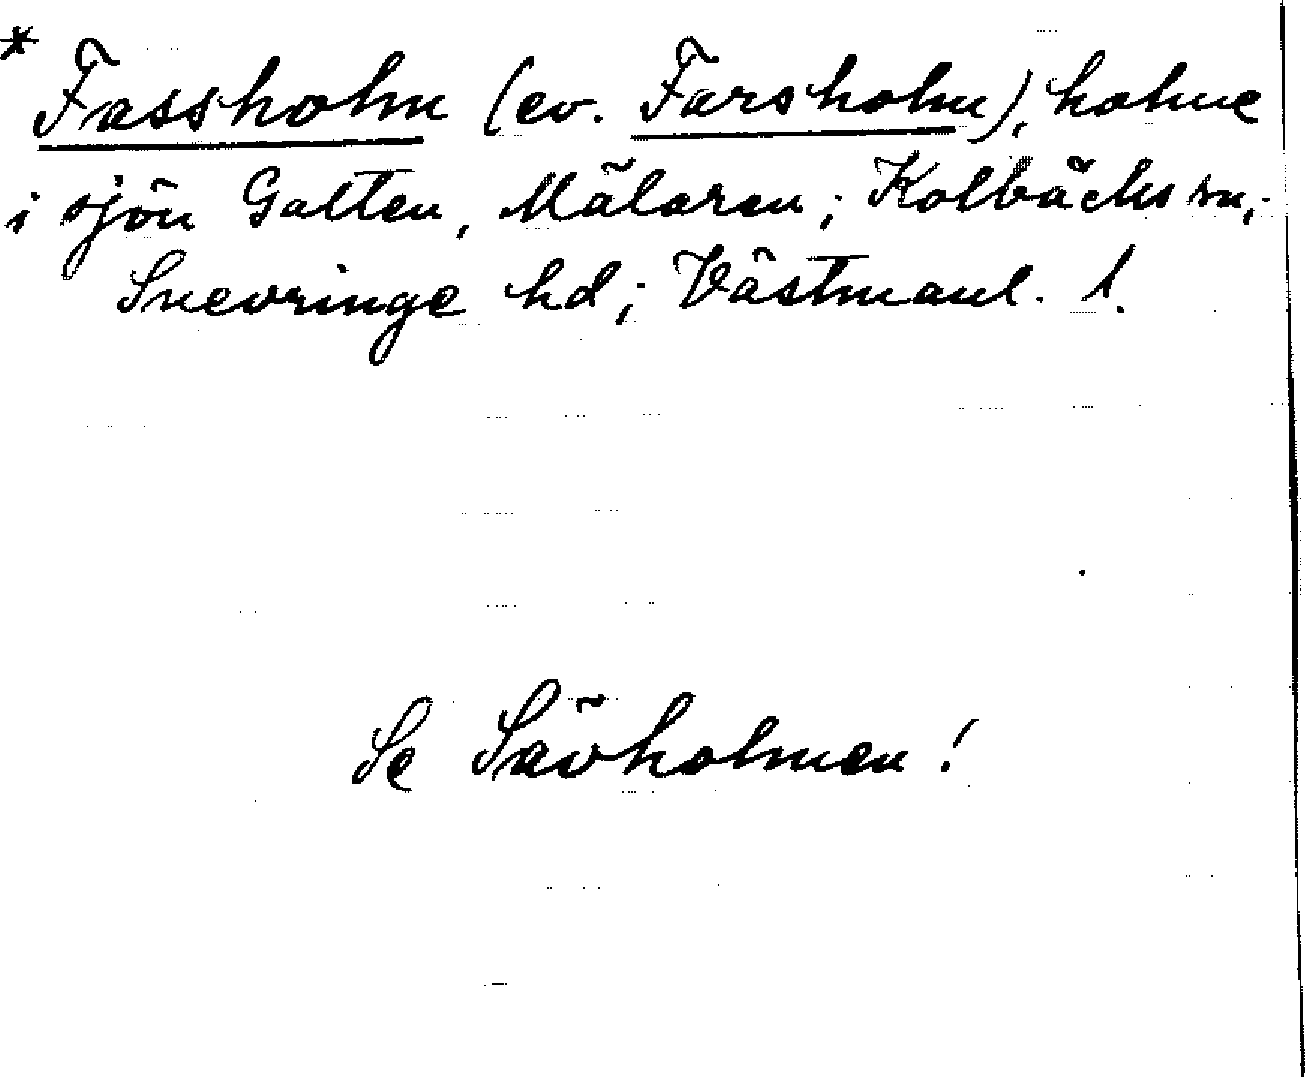 * Fassholm (ev. Farsholm), holme
i sjön Galten, Mälaren; Kolbäcks sn,
Snevringe hd; Västmanl. l.
Se Sävholmen!